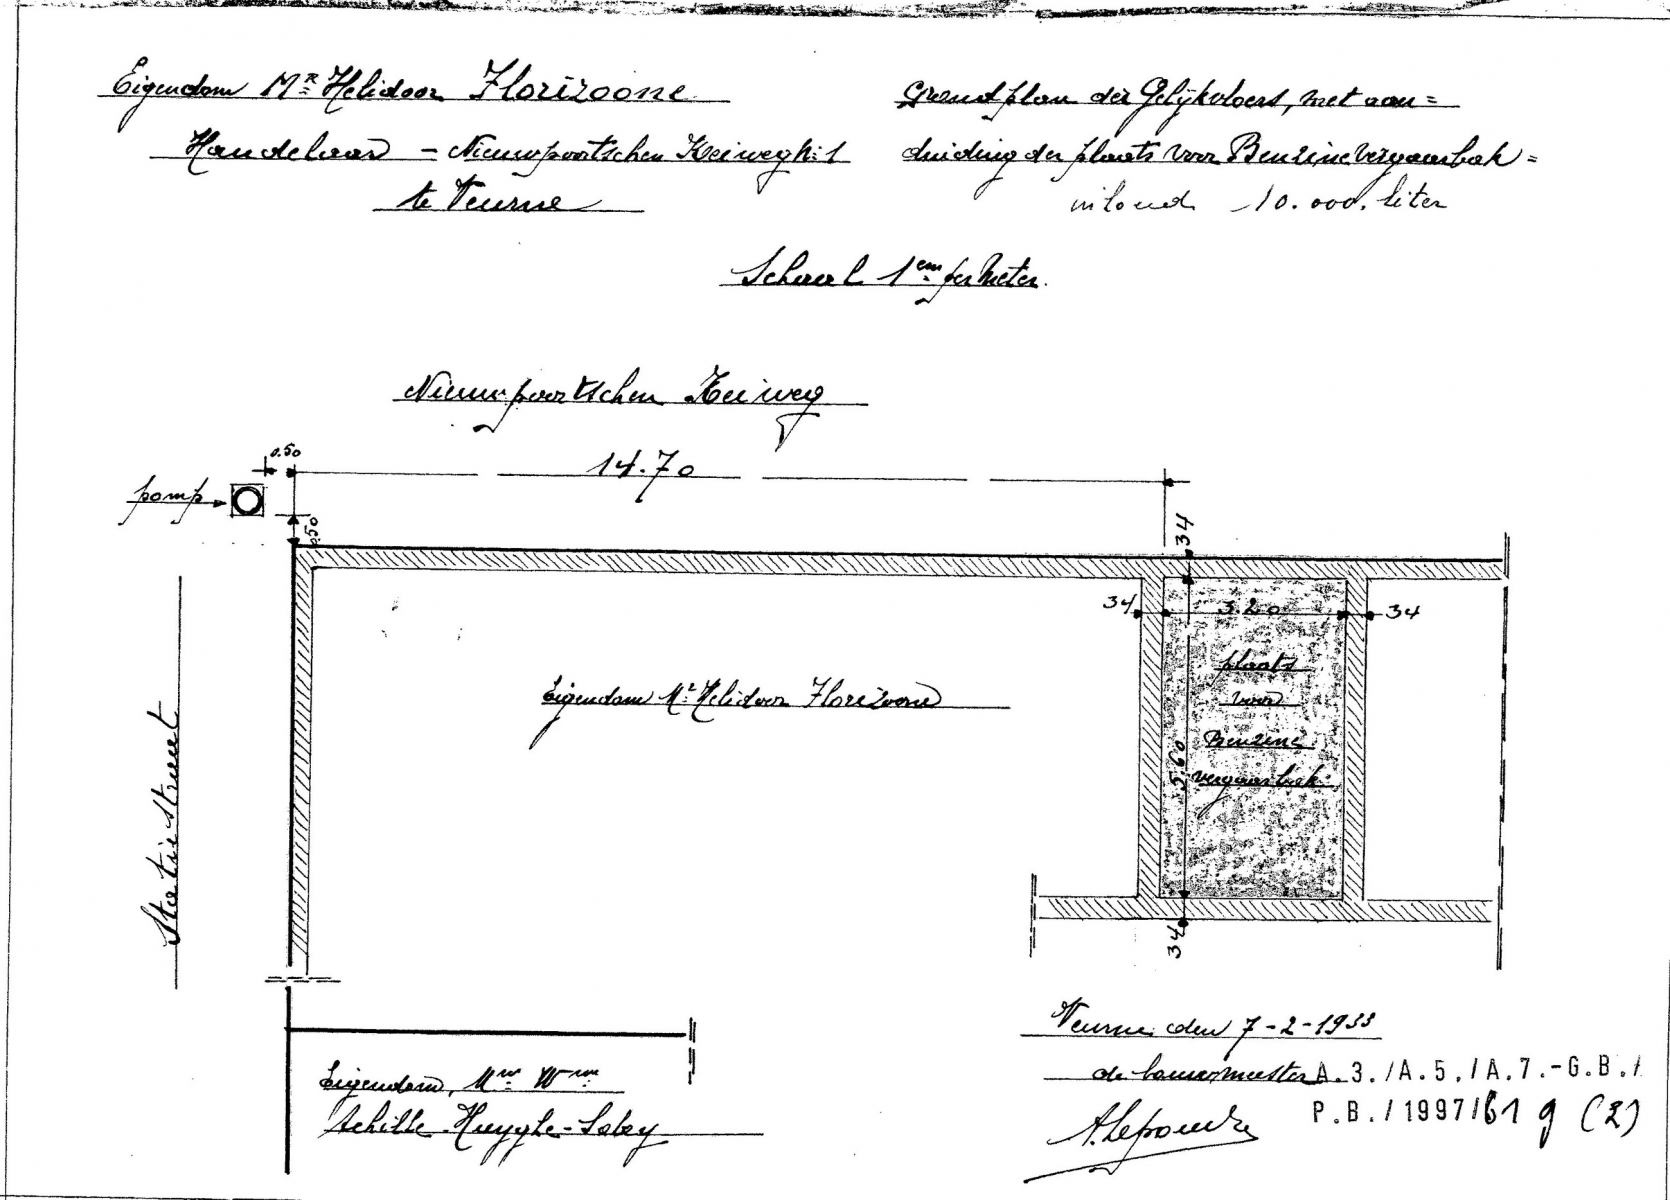 Eigendom Mr Helidoor Florizoone
Handelaar - Nieuwpoortschen Keiweg N:1
te Veurne
Grondplan der Gelijkvloers, met aan=
duiding der plaats voor Benzinevergaarbak =
inhoud 10.000. liter
Schaal 1cm per Meter.
Nieuwpoortschen Keiweg
0.50
14.70
pomp
0.50
34
34
3.20
34
plaats
voor
Benzine
vergaarbak.
5.60
Eigendom Mr Helidoor Florizoone
Statiestraat
34
Veurne den 7-2-1933
de bouwmeester
A.3./A.5./A.7.-G.B./
P.B./1997/61 g (2)
Eigendom, Mw Wwe
Achille Huyghe-